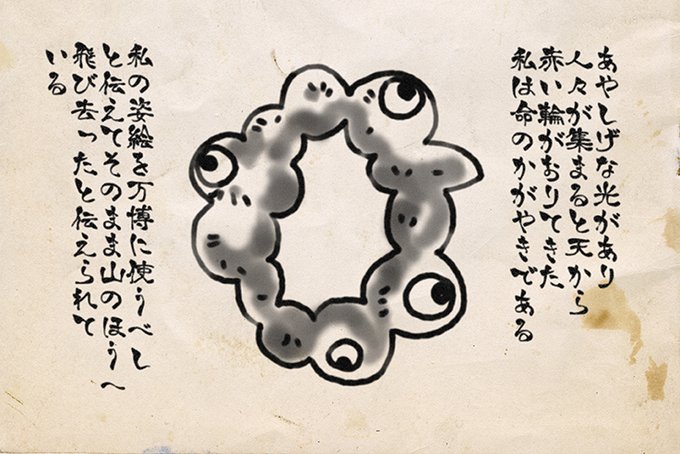 あやしげな光があり
人々が集まると天から
赤い輪がおりてきた
私は命のかがやきである
私の姿絵を万博に使うべし
と伝えてそのまま山のほうへ
飛び去ったと伝えられて
いる